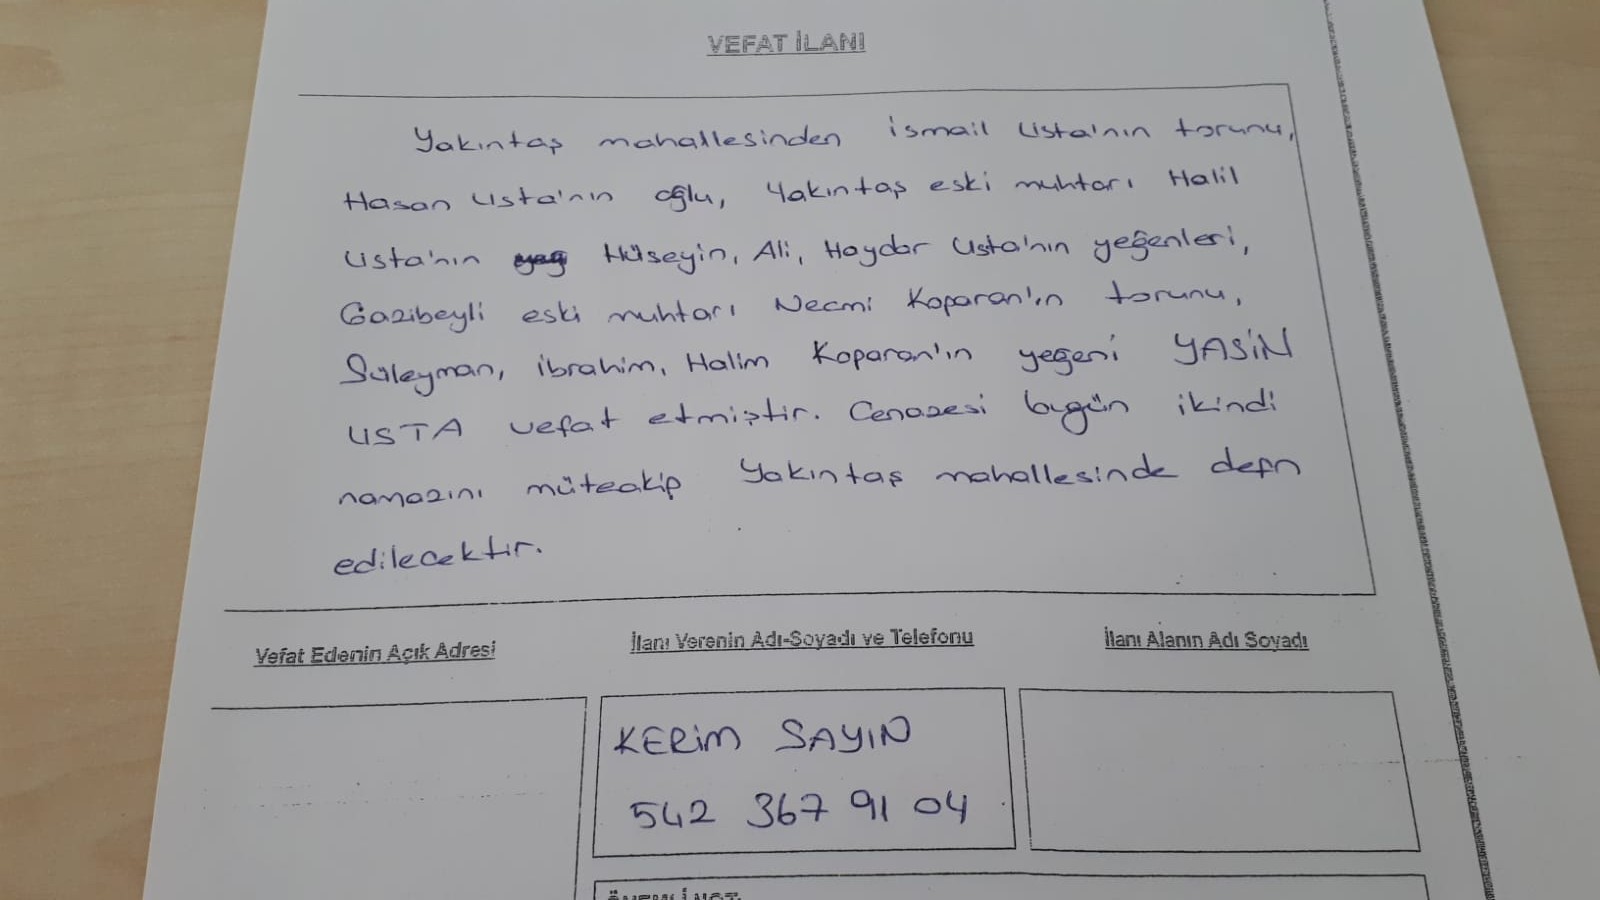 VEFAT İLANI
Yakıntaş mahallesinden ismail Usta'nın torunu,
Hasan Usta'nın oğlu, Yakıntaş eski muhtarı Halil
Usta'nın Hüseyin, Ali, Haydar Usta'nın yeğenleri,
Gazibeyli eski muhtarı Necmi Koparan'ın torunu,
Süleyman, ibrahim, Halim Koparan'ın yeğeni YASİN
USTA vefat etmiştir. Cenazesi bugün ikindi
namazını müteakip Yakıntaş mahallesinde defn
edilecektir.
Vefat Edenin Açık Adresi
İlanı Verenin Adı-Soyadı ve Telefonu
İlanı Alanın Adı Soyadı
KERİM SAYIN
542 367 91 04